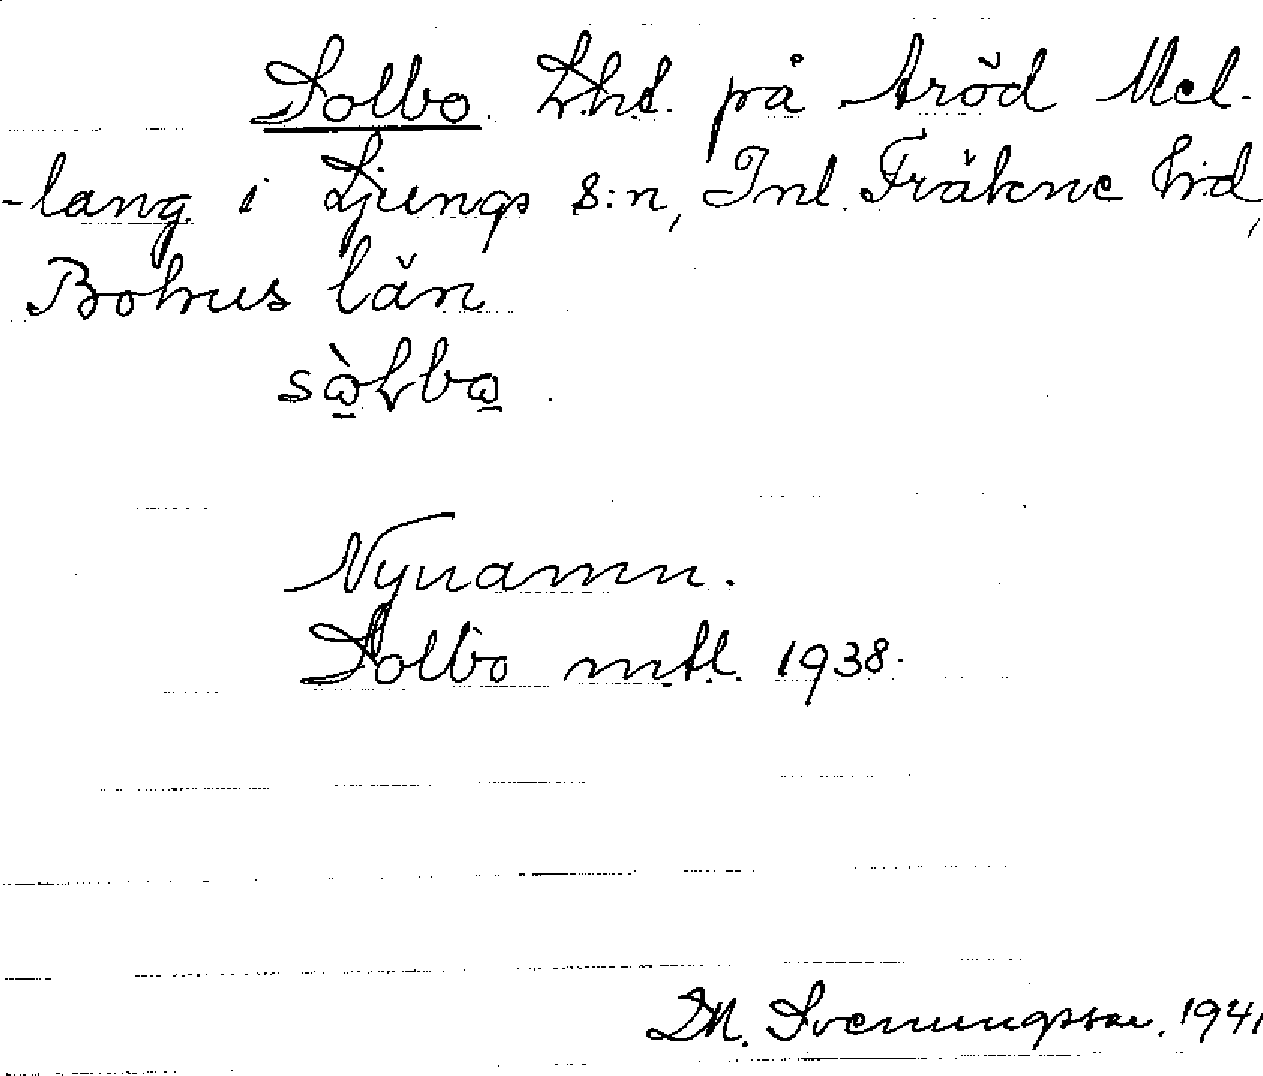 Solbo Lht. på Aröd Mel-
-lang i Ljungs s:n, Inl. Fräkne hd,
Bohus län
sɷ̀Lbɷ.
Nynamn.
Solbo mtl. 1938.
Svenungsson. 1941